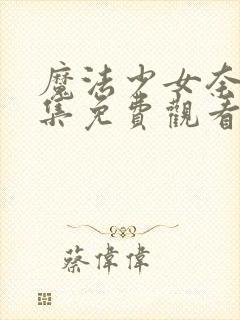 魔法少女奈
集免費觀看
蔡偉偉